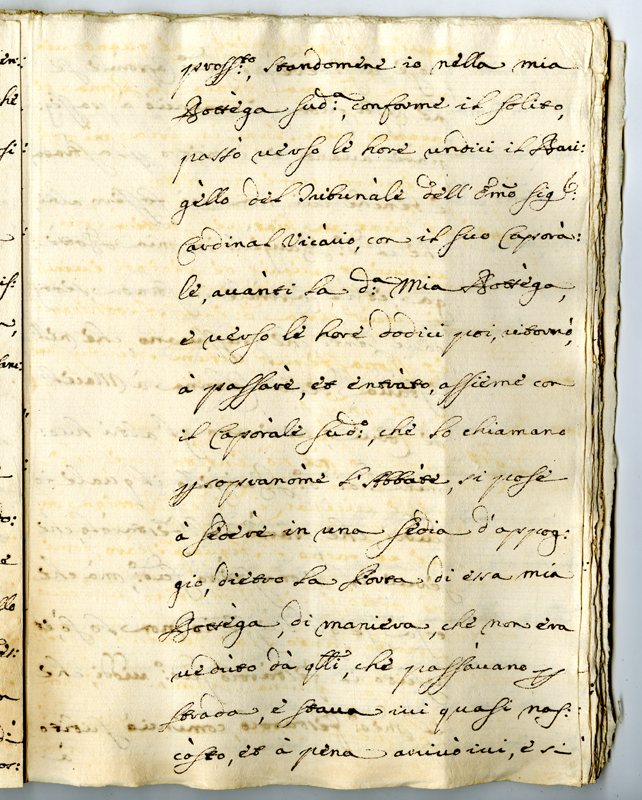 pross:to, standomene io nella mia
Bottèga sud:a, conforme il solito,
passò verso le hore undici il Bari:
gèllo del Tribunàle dell' Emo Sig:r
Cardinal Vicàrio, con il suo Caporà:
le, avànti la d:a Mia Bottèga,
e verso le hore dodici poi, ritornò,
à passàre, et entràto, assieme con
il Caporàle sud:o, che lo chiamano
p sopranòme l'Abbàte, si pose
à sedère in una sedia d'appog:
gio, dietro la Porta di essa mia
Bottèga, di maniera, che non era
veduto dà qlli, che passàvano p
strada, e stava ivi quasi nas:
còsto, et à pena arrivò ivi, e si
en:
he
si